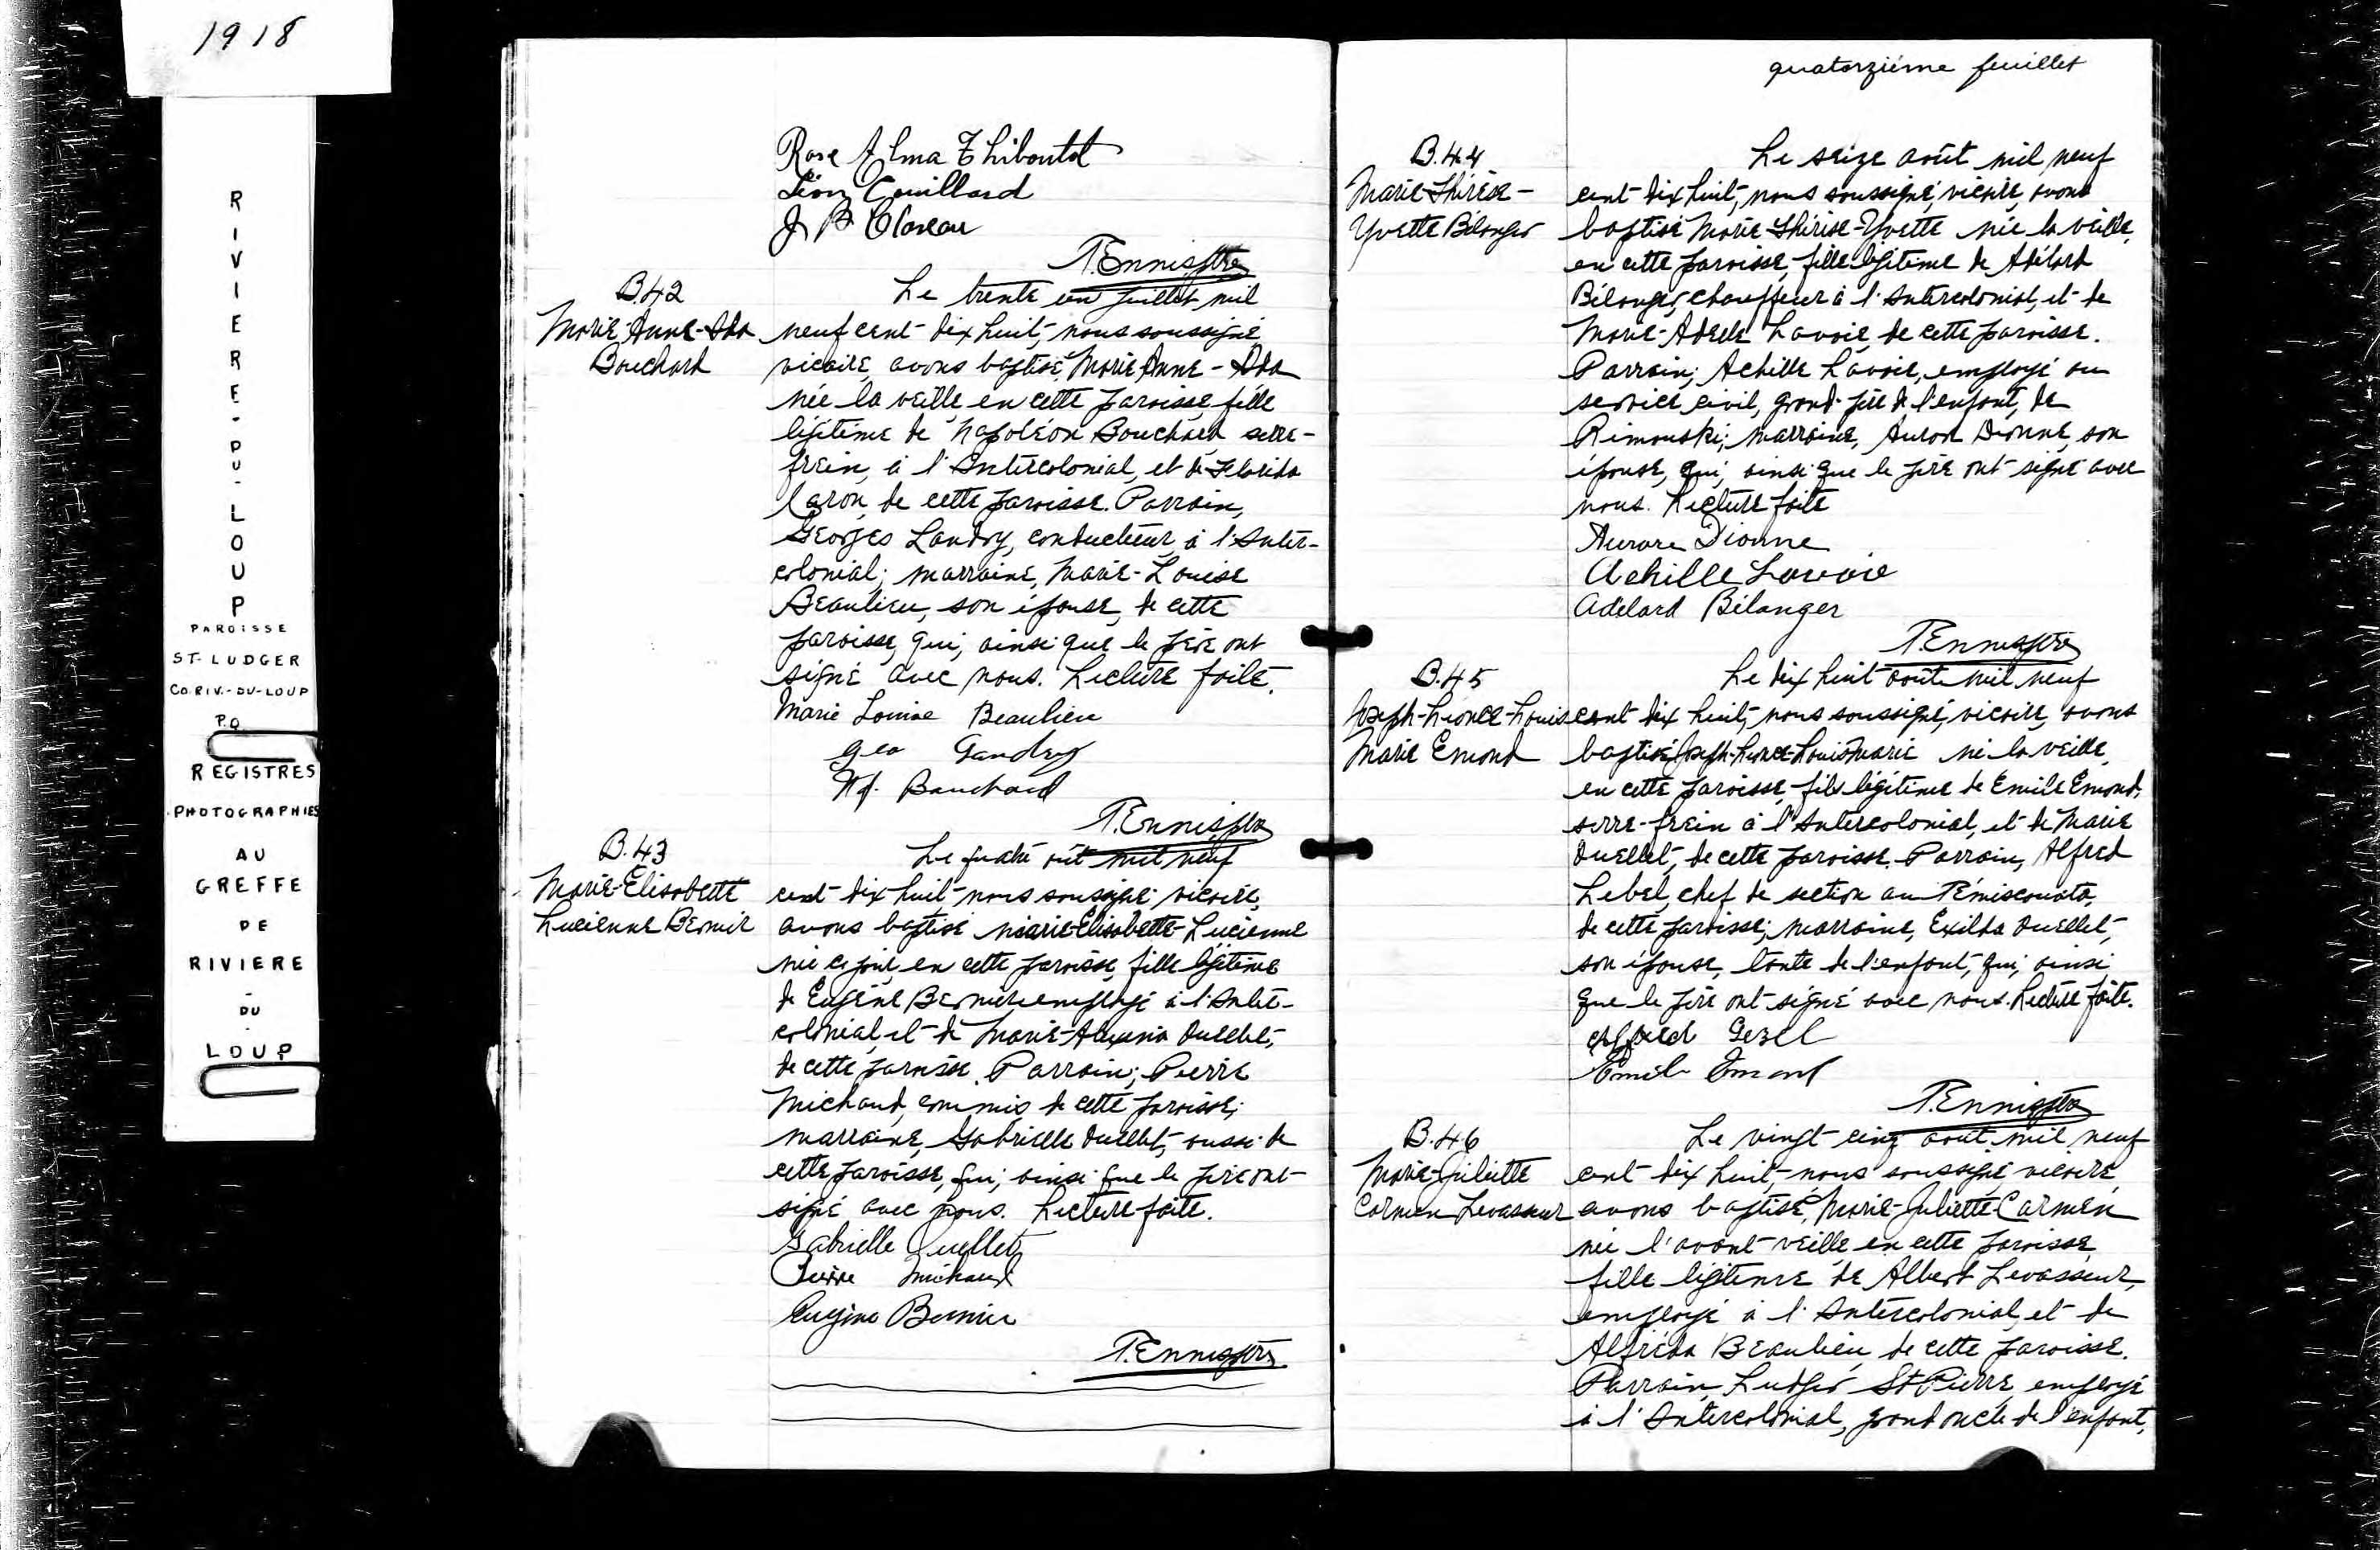 1918
RIVIERE-DU-LOUP
PAROISSE
ST-LUDGER
CO. RIV.-DU-LOUP
P.Q
REGISTRES
PHOTOGRAPHIES
AU
GREFFE
DE
RIVIERE
-
DU
-
LOUP
Rose Alma Thiboutot
Léon Couillard
J B Claveau
T. Ennis ptre
B.42
Marie-Anne-Ada
Bouchard
Le trente un juillet mil
neuf cent dix huit, nous soussigné
vicaire, avons baptisé, Marie Anne-Ada
née la veille en cette paroisse, fille
légitime de Napoléon Bouchard serre-
frein, à l'Intercolonial, et de Florida
Caron, de cette paroisse. Parrain,
Georges Landry, conducteur à l'Inter-
colonial; marraine, Marie-Louise
Beaulieu, son épouse, de cette
paroisse, qui, ainsi que le père ont
signé avec nous. Lecture faite.
Marie Louise Beaulieu
Geo Landry
Np. Bouchard
T. Ennis ptre
B.43
Marie-Elisabette
Lucienne Bernier
Le quatre août mil neuf
cent dix huit nous soussigné vicaire,
avons baptisé Marie-Elisabette-Lucienne
née ce jour en cette paroisse, fille légitime
de Eugène Bernier employé à l'Inter-
colonial, et de Marie-Ouellet,
de cette paroisse. Parrain; Pierre
Michaud, commis de cette paroisse;
marraine, Gabrielle Ouellet, aussi de
cette paroisse, qui, ainsi que le père ont
signé avec nous. Lecture faite.
Gabrielle Ouellet
Pierre Michaud
Eugène Bernier
T. Ennis ptre
quatorzième feuillet
B.44
Marie-Thérèse-
Yvette Bélanger
Le seize août mil neuf
cent dix huit, nous soussigné, vicaire, avons
baptisé Marie-Thérèse-Yvette née la veille,
en cette paroisse, fille légitime de Adélard
Bélanger, chauffeur à l'Intercolonial, et de
Marie-Adèle Lavoie, de cette paroisse.
Parrain; Achille Lavoie, employé au
service civil, grand-père de l'enfant, de
Rimouski; marraine, Auror Dionne, son
épouse, qui, ainsi que le père ont signé avec
nous. Lecture faite
Aurore Dionne
Achille Lavoie
Adélard Bélanger
T. Ennis ptre
B.45
Joseph-Léonce-Louis
Marie Emond
Le dix huit août mil neuf
cent dix huit, nous soussigné, vicaire, avons
baptisé Joseph-Léonce-Louis-Marie né la veille,
en cette paroisse, fils légitime de Emile Emond,
serre-frein à l'Intercolonial, et de Marie
Ouellet, de cette paroisse. Parrain, Alfred
Lebel, chef de section au Témiscouata,
de cette paroisse; marraine, Exilda Ouellet,
son épouse, tante de l'enfant, qui, ainsi
que le père ont signé avec nous. Lecture faite.
Alfred Lebel
Emile Emond
T. Ennis ptre
B.46
Marie-Juliette
Carmen Levasseur
Le vingt cinq août mil neuf
cent dix huit, nous soussigné vicaire,
avons baptisé, Marie-Juliette-Carmen
née l'avant-veille en cette paroisse,
fille légitime de Albert Levasseur,
employé à l'Intercolonial, et de
Alfréda Beaulieu, de cette paroisse.
Parrain, Ludger St Pierre, employé
à l'Intercolonial, grand oncle de l'enfant,